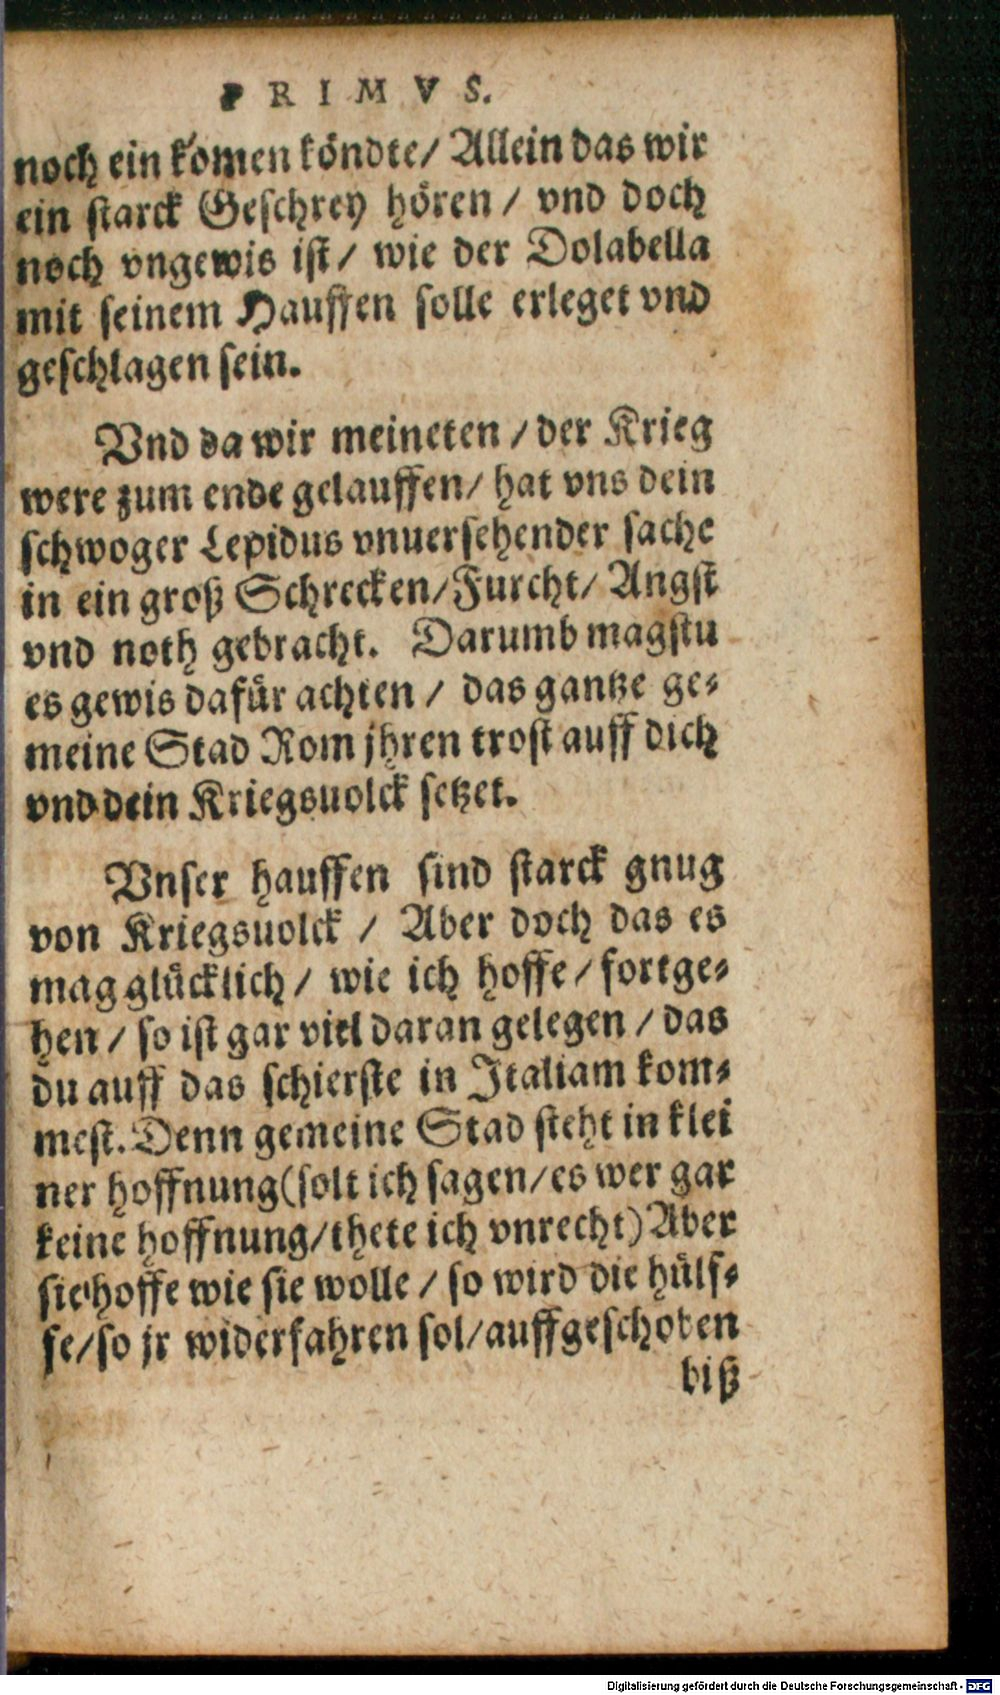 PRIMVS.
noch ein komen köndte/ Allein das wir
ein starck Geschrey hören / vnd doch
noch vngewis ist/ wie der Dolabella
mit seinem Hauffen solle erleget vnd
geschlagen sein.
Vnd da wir meineten / der Krieg
were zum ende gelauffen/ hat vns dein
schwoger Lepidus vnuersehender sache
in ein groß Schrecken/Furcht/ Angst
vnd noth gebracht. Darumb magstu
es gewis dafür achten / das gantze ge-
meine Stad Rom jhren trost auff dich
vnd dein Kriegsuolck setzet.
Vnser hauffen sind starck gnug
von Kriegsuolck / Aber doch das es
mag glücklich/ wie ich hoffe/ fortge-
hen / so ist gar viel daran gelegen / das
du auff das schierste in Italiam kom-
mest. Denn gemeine Stad steht in klei
ner hoffnung(solt ich sagen/es wer gar
keine hoffnung/thete ich vnrecht) Aber
sie hoffe wie sie wolle / so wird die hülf-
fe/so jr widerfahren sol/auffgeschoben
biß
Digitalisierung gefördert durch die Deutsche Forschungsgemeinschaft - DFG